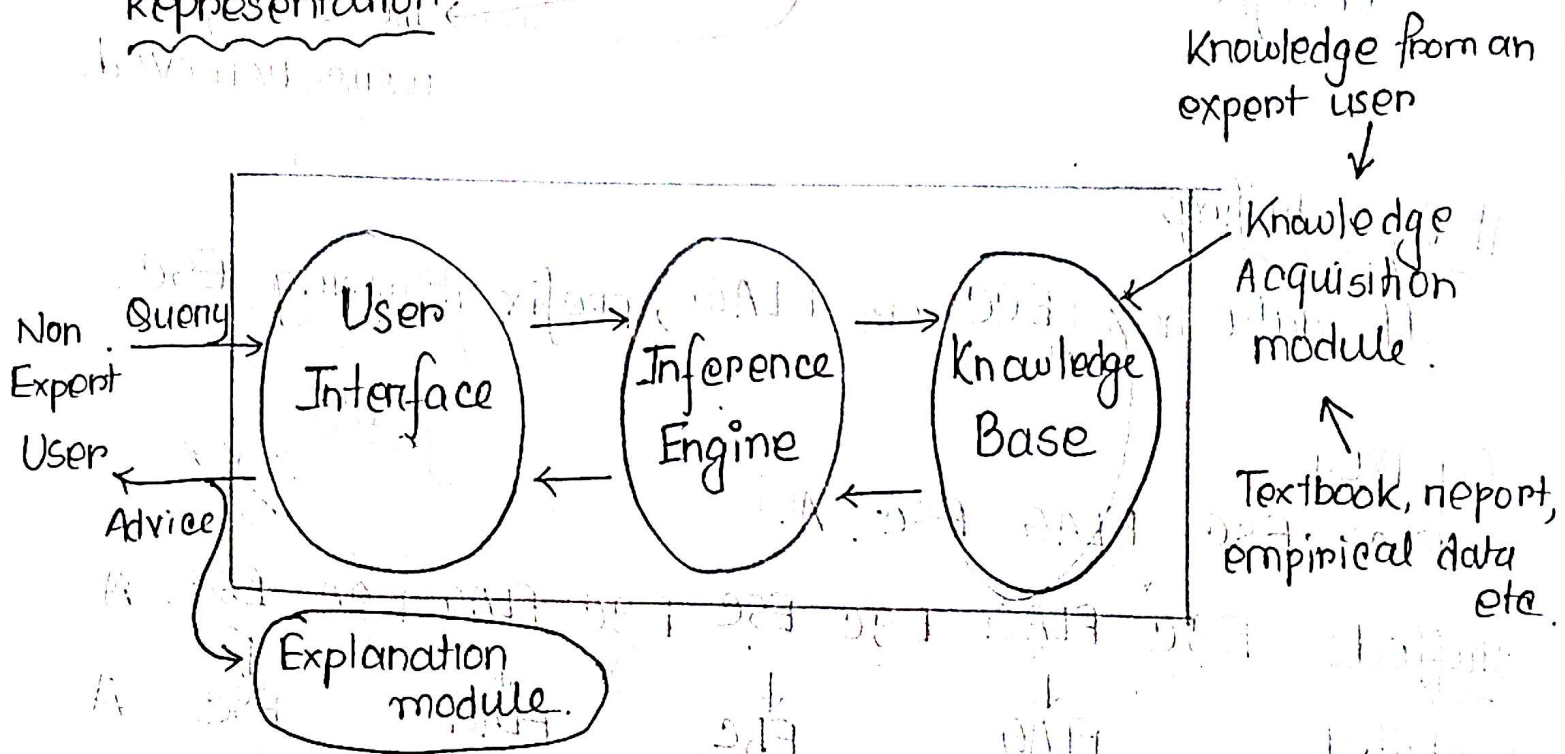 Representation:
Knowledge from an
expert user
Knowledge
Acquisition
module.
Textbook, report,
empirical data
etc.
Non
Expert
User
Query
Advice
User
Interface
Inference
Engine
Knowledge
Base
Explanation
module.